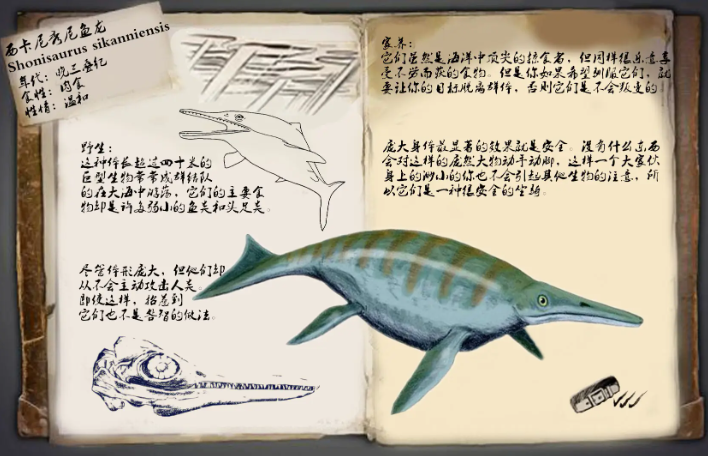 西卡尼秀尼鱼龙
Shonisaurus sikanniensis
年代：晚三叠纪
食性：肉食
性情：温和
野生：
这种体长超过四十米的
巨型生物常常成群结队
的在大海中游荡，它们的主要食
物却是许多弱小的鱼类和头足类。
尽管体形庞大，但他们却
从不会主动攻击人类。
即使这样，招惹到
它们也不是明智的做法。
家养：
它们虽然是海洋中顶尖的掠食者，但同样很乐意享
受不劳而获的食物。但是你如果希望驯服它们，就
要让你的目标脱离群体，否则它们是不会叛变的
庞大身体最显著的效果就是安全。没有什么东西
会对这样的庞然大物动手动脚，这样一个大家伙
身上的渺小的你也不会引起其他生物的注意，所
以它们是一种很安全的坐骑。